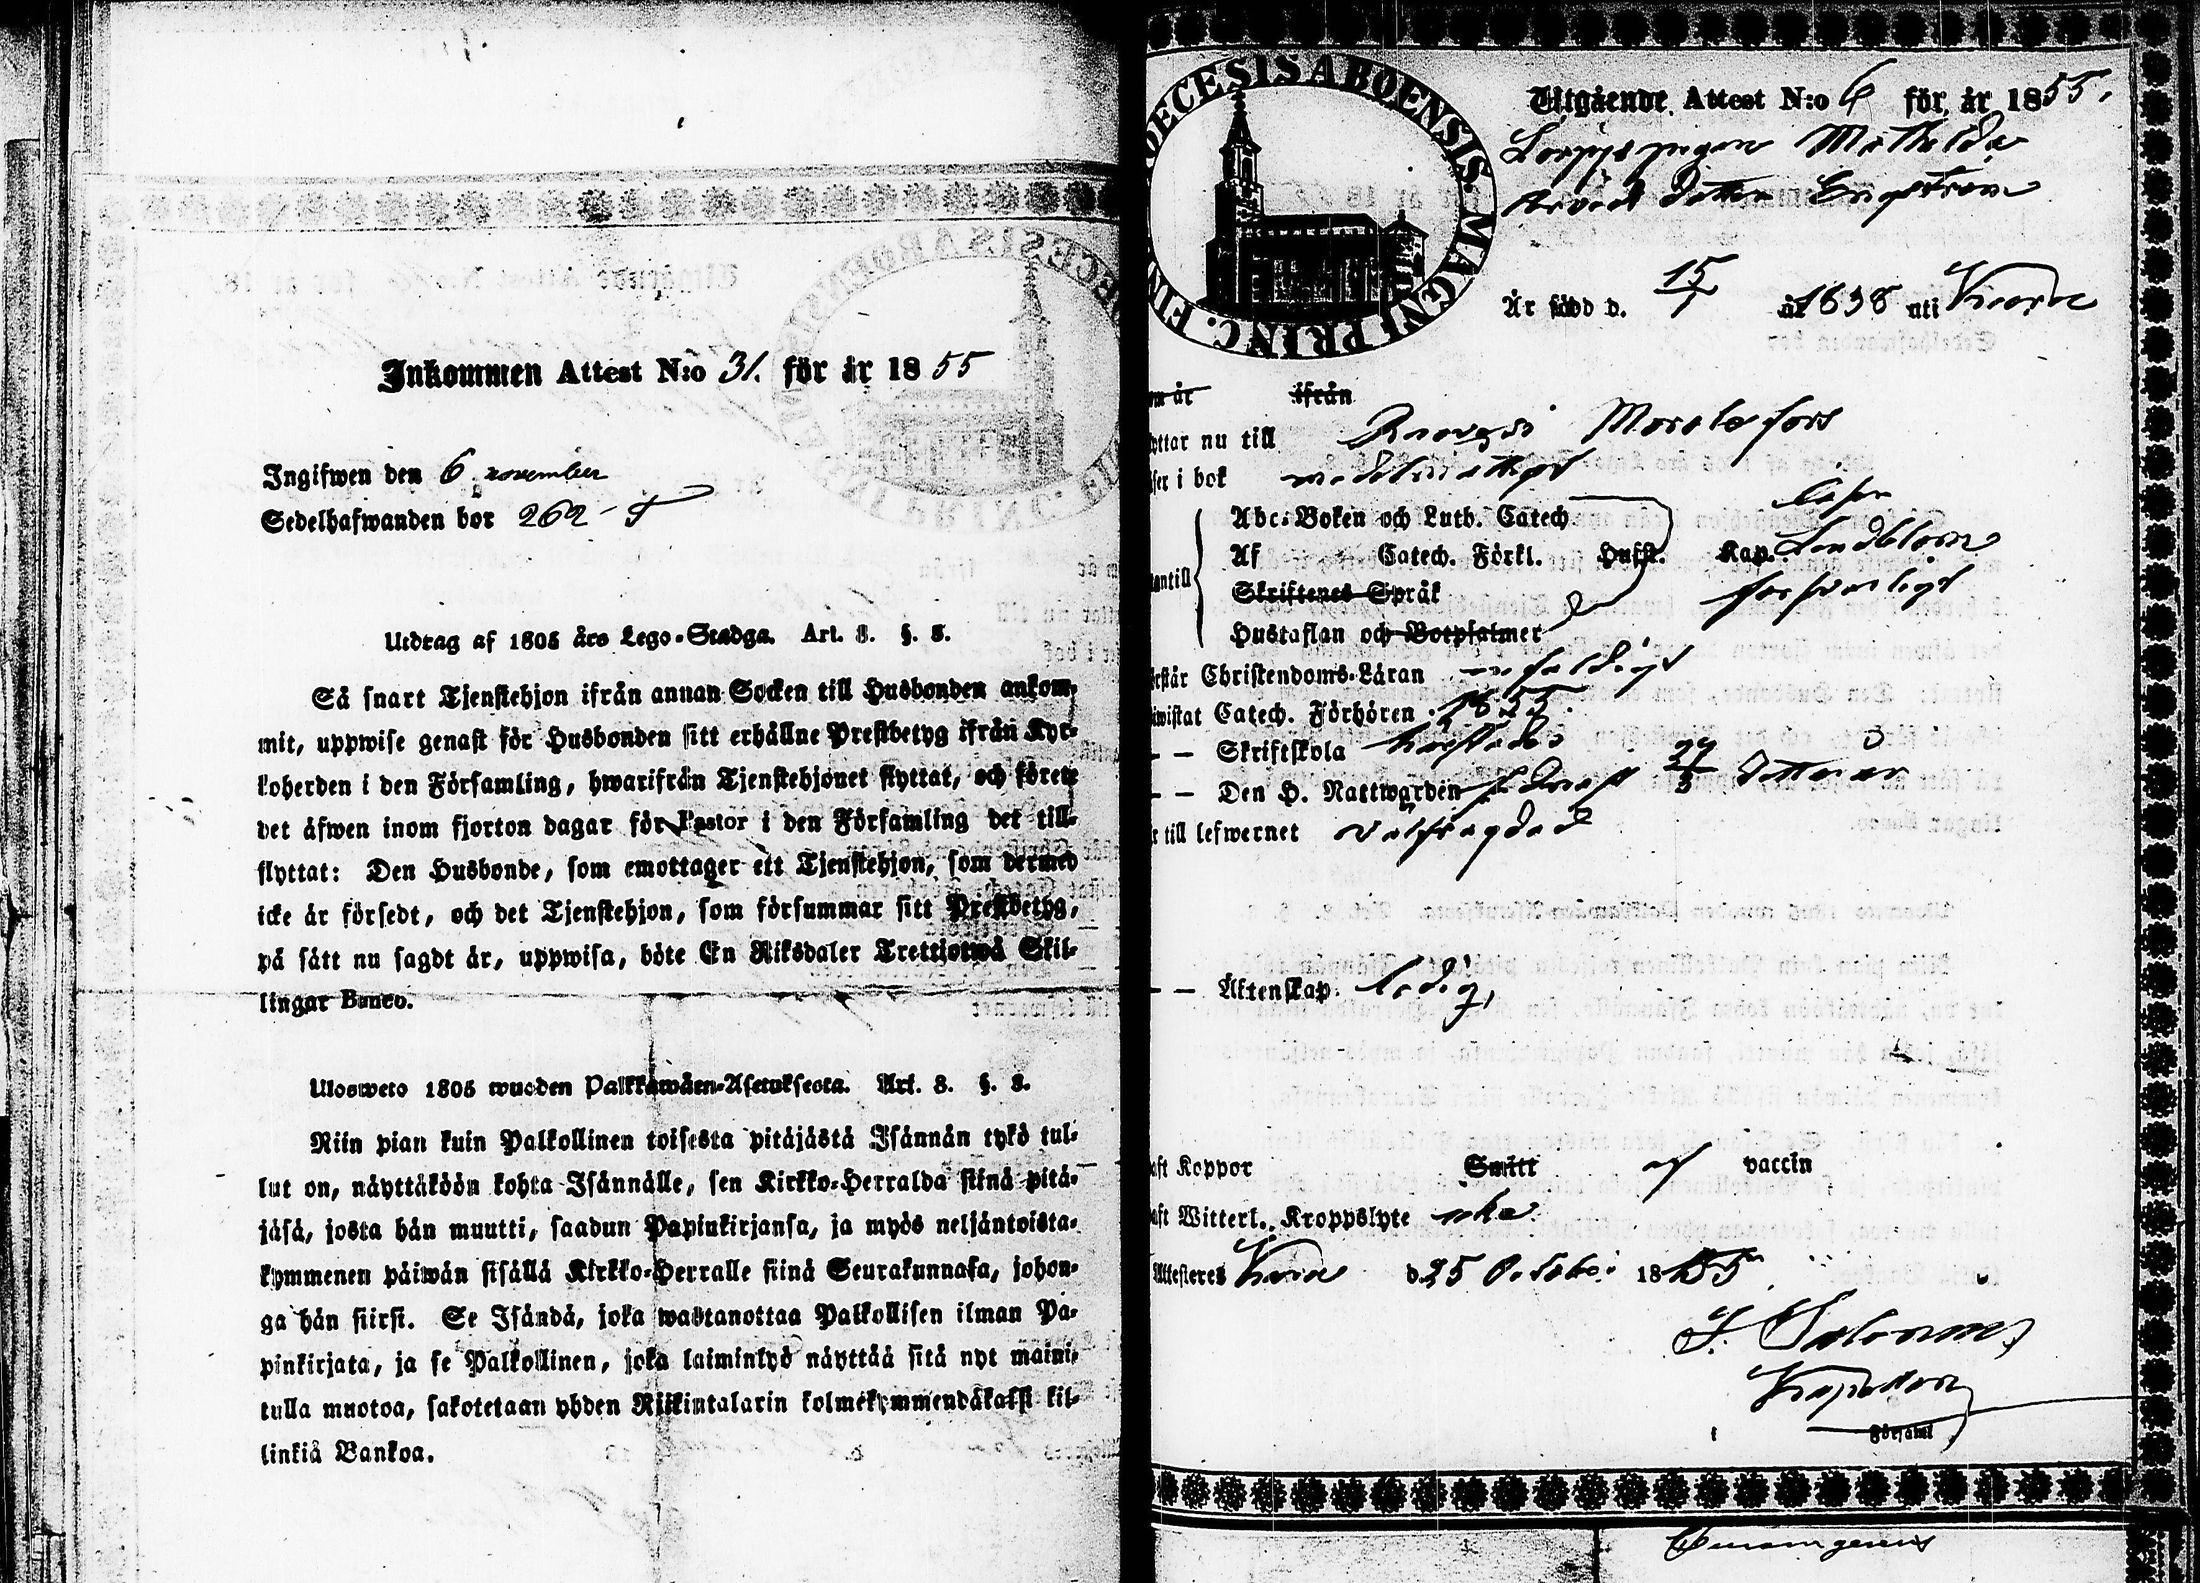 Inkommen Attest N:o 31. för år 1855
Ingifwen den 6 november
Sedelhafwanden bor 262
Utdrag af 1805 års Lego-Stadga. Art. 8. §. 8.
Så snart Tjenstehjon ifrån annan Socken till Husbonden ankom-
mit, uppwise genast för Husbonden sitt erhållne Prestbetyg ifrån Kyr-
koherden i den Församling, hwarifrån Tjenstehjonet flyttat, och förete
det äfwen inom fjorton dagar för Pastor i den Församling det till-
flyttat: Den Husbonde, som emottager ett Tjenstehjon, som dermed
icke är försedt, och det Tjenstehjon, som försummar sitt Prestbetyg,
på sätt nu sagdt är, uppwisa, böte En Riksdaler Trettiotwå Skil-
lingar Banco.
Ulosweto 1805 wuoden Palkkawäen-Asetuksesta. Art. 8. §. 8.
Niin pian kuin Palkollinen toisesta pitäjästä Isännän tykö tul-
lut on, näyttäköön kohta Isännälle, sen Kirkko-Herralda siinä pitä-
jäsä, josta hän muutti, saadun Papinkirjansa, ja myös neljäntoista-
kymmenen päiwän sisällä Kirkko-Herralle siinä Seurakunnasa, johon-
ga hän siirsi. Se Isändä, joka wastanottaa Palkollisen ilman Pa-
pinkirjata, ja se Palkollinen, joka laiminlyö näyttää sitä nyt maini-
tulla muotoa, sakotetaan yhden Riikintalarin kolmekymmendäkaksi kil-
linkiä Bankoa.
DECESIS ABOENSIS. MAGNI PRINC. FIN
Utgående Attest N:o 6 för år 1855.
Mathilda
Arvids Dotter Engström
Är född d. 15/1 år 1838 uti
om år ifrån
yttar nu till
ser i bok medelmåttigt
Abc-Boken och Luth. Catech.
Af Catech. Förkl. Husst. Kap. Lindblom
antill Skriftenes Språk försvarligt
Hustaflan och Botpsalmer
rstår Christendoms-Läran enfaldigt
iwistat Catech. Förhören 1855.
— — Skriftskola
— — Den H. Nattwarden
r till lefwernet välfrägdad
— — Äktenskap. ledig,
aft Koppor Smitt af vaccin
aft Witterl. Kroppslyte icke
Attesteres d. 25 October 1855
Kapellan
Församl